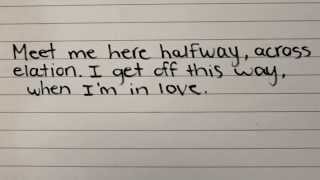 Meet me here halfway, across
elation. I get off this way,
when I'm in love.